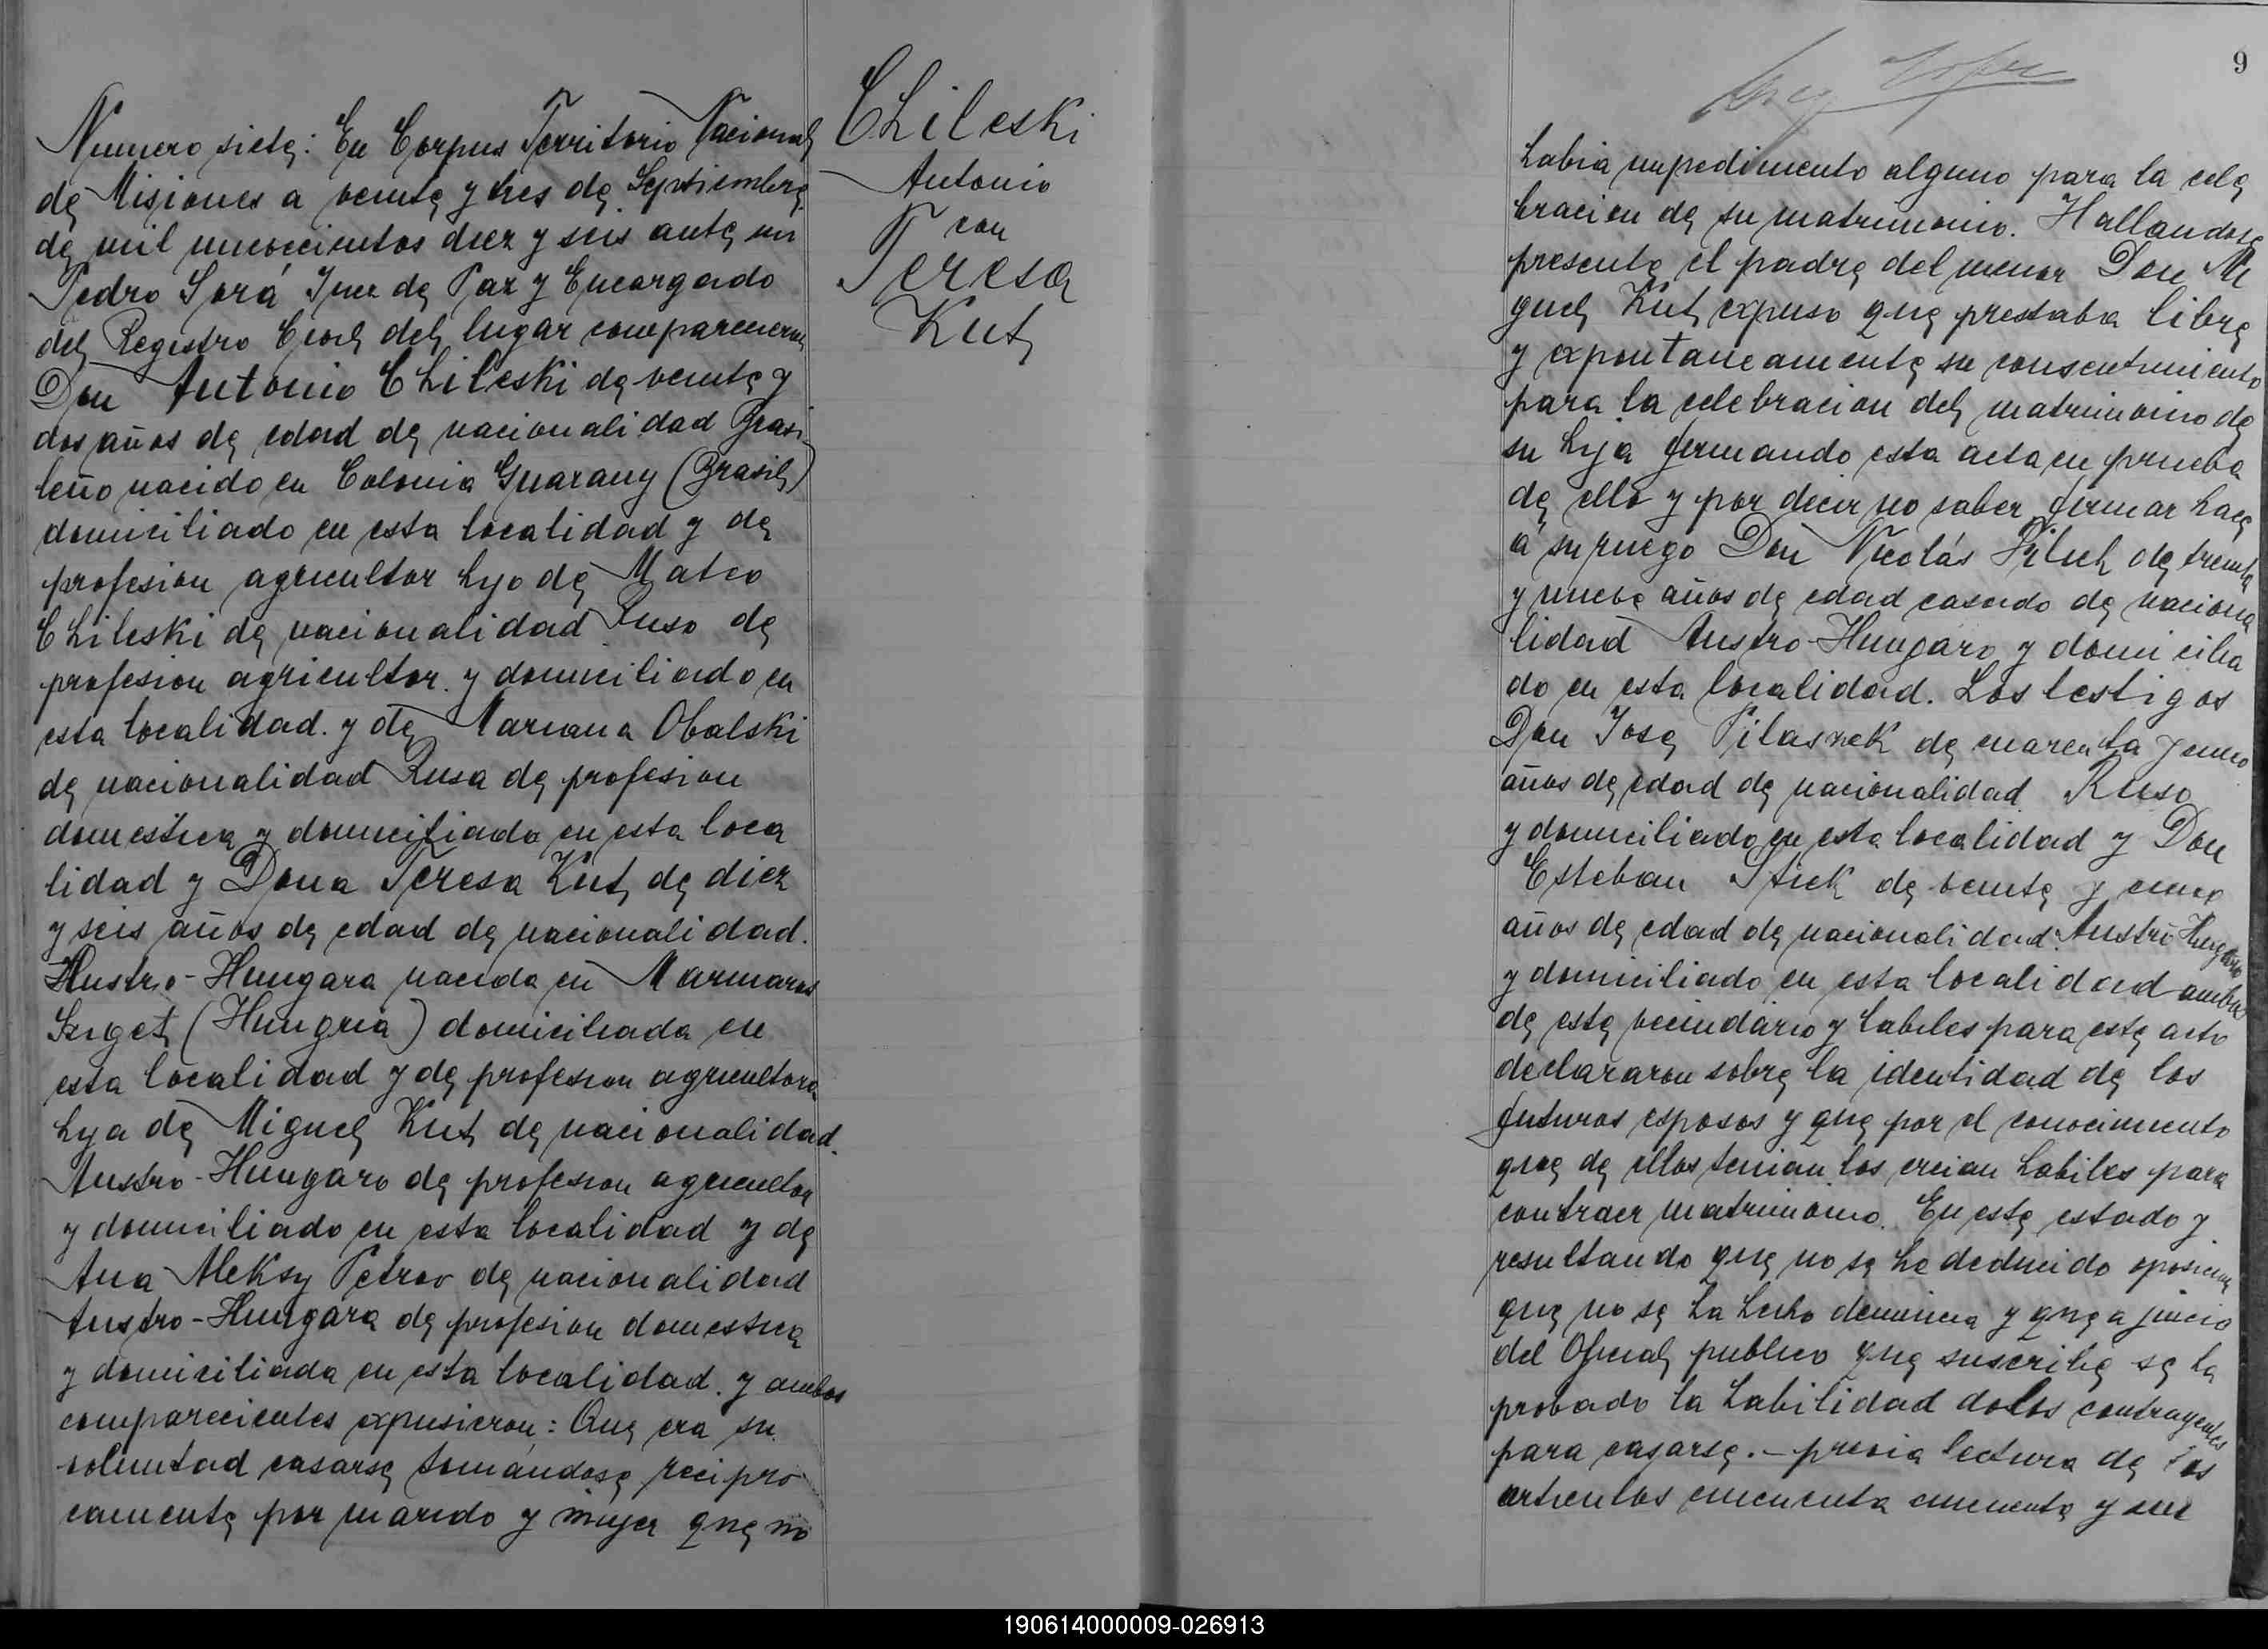 Numero siete: En Corpus Territorio Nacional
de Misiones a veinte y tres de Septiembre
de mil novecientos diez y seis ante mi
Pedro Sorá Juez de Paz y Encargado
del Registro Civil del lugar comparecieron
Don Antonio Chileski de veinte y
dos años de edad de nacionalidad Brasi
leño nacido en Colonia Guarany (Brasil)
domiciliado en esta localidad y de
profesion agricultor hijo de Mateo
Chileski de nacionalidad Ruso de
profesion agricultor y domiciliado en
esta localidad. y de Mariana Obalski
de nacionalidad Rusa de profesion
domestica y domiciliada en esta loca
lidad y Dona Teresa Kut de diez
y seis años de edad de nacionalidad.
Austro-Hungara nacida en Marmaros
Siget (Hungria) domiciliada en
esta localidad y de profesion agricultora
hija de Miguel Kut de nacionalidad.
Austro-Hungaro de profesion agricultor
y domiciliado en esta localidad y de
Ana Aleksy Petrov de nacionalidad
Austro-Hungara de profesion domestica
y domiciliada en esta localidad. y ambos
comparecientes expusieron: Que era su
voluntad casarse tomandose recipro
camente por marido y mujer que no
Chileski
Antonio
con
Teresa
Kut
9
habia impedimento alguno para la cele
bracion de su matrimonio. Hallandose
presente el padre del menor Don Mi
guel Kut expuso que prestaba libre
y expontaneamente su consentimiento
para la celebracion del matrimonio de
su hija firmando esta acta en prueba
de ello y por decir no saber firmar hace
a su ruego Don Nicolás Piluch de treinta
y nueve años de edad casado de naciona
lidad Austro-Hungaro y domicilia
do en esta localidad. Los testigos
Don Jose Pilaszek de cuarenta y cinco
años de edad de nacionalidad Ruso
y domiciliado en esta localidad y Don
Esteban Stiek de veinte y cinco
años de edad de nacionalidad Austro Hungaro
y domiciliado en esta localidad ambos
de este vecindario y habiles para este acto
declararon sobre la identidad de los
futuros esposos y que por el conocimiento
que de ellos tenian los creian habiles para
contraer matrimonio. En este estado y
resultando que no se ha deducido oposicion
que no se ha hecho denuncia y que a juicio
del Oficial publico que suscribe se ha
probado la habilidad dolos contrayentes
para casarse.- previa lectura de los
articulos cincuenta cincuenta y uno
190614000009-026913